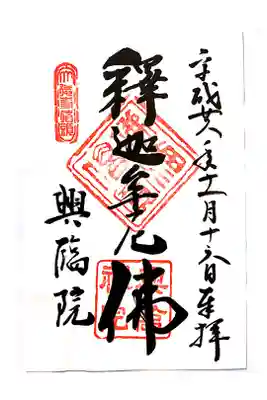 平成廿八年十一月十六日奉拝
釋迦牟尼佛
興臨院